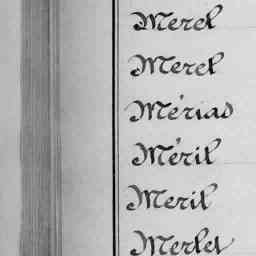 Merel
Merel
Mérias
Méril
Meril
Merlet